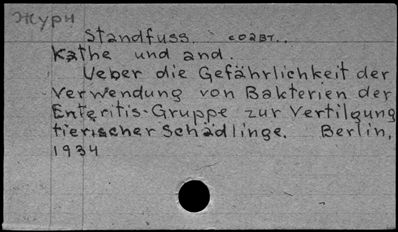 Журн
Standfuss, соавт..
Kathe und and.
Ueber die Gefährlichkeit der
Verwendung von Bakterien der
Enteritis-Gruppe zur Vertilgung
tierischer Schädlinge. Berlin,
1934